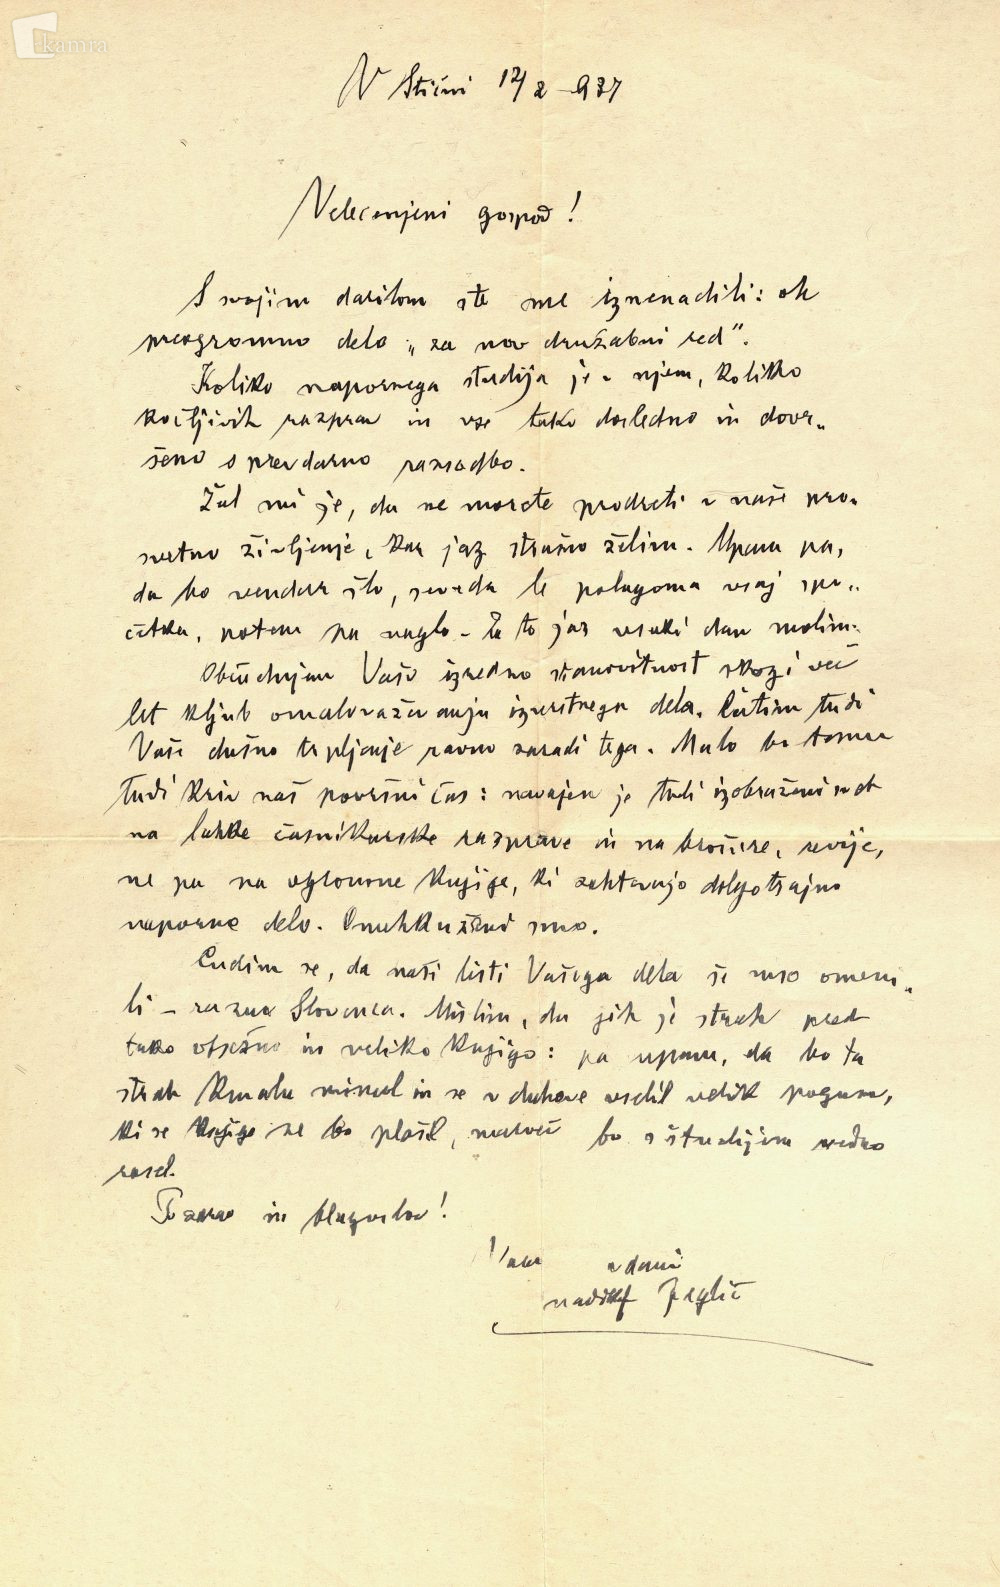 kamra
V Stični 12/2 937
Velecenjeni gospod!
S svojim darilom ste me iznenadili: oh
preogromno delo „za nov družabni red“.
Koliko napornega študija je v njem, koliko
kočljivih razprav in vse tako dosledno in dovr„
šeno s prevdarno razsodbo.
Žal mi je, da ne morete prodreti v naše pro„
svetno življenje, kar jaz strašno želim. Upam pa,
da bo vendar šlo, seveda le polagoma vsaj spo„
četka, potem pa naglo. Za to jaz vsaki dan molim.
Občudujem Vašo izredno stanovitnost skozi več
let kljub omalovaževanju izvrstnega dela. Čutim tudi
Vaše dušno trpljenje ravno zaradi tega. Malo bo temu
tudi kriv naš površni čas: navajen je tudi izobraženi svet
na lahke časnikarske razprave in na brošure, revije,
ne pa na ogromne knjige, ki zahtevajo dolgotrajno
naporno delo. Omehkuženi smo.
Čudim se, da naši listi Vašega dela še niso omeni„
li – razun Slovenca. Mislim, da jih je strah pred
tako obsežno in veliko knjigo: pa upam, da bo ta
strah kmalu minul in se v duhove vselil velik pogum,
ki se knjige ne bo plašil, marveč bo s študijem vedno
rasel.
Pozdrav in blagoslov!
Vam vdani
nadškf Jeglič